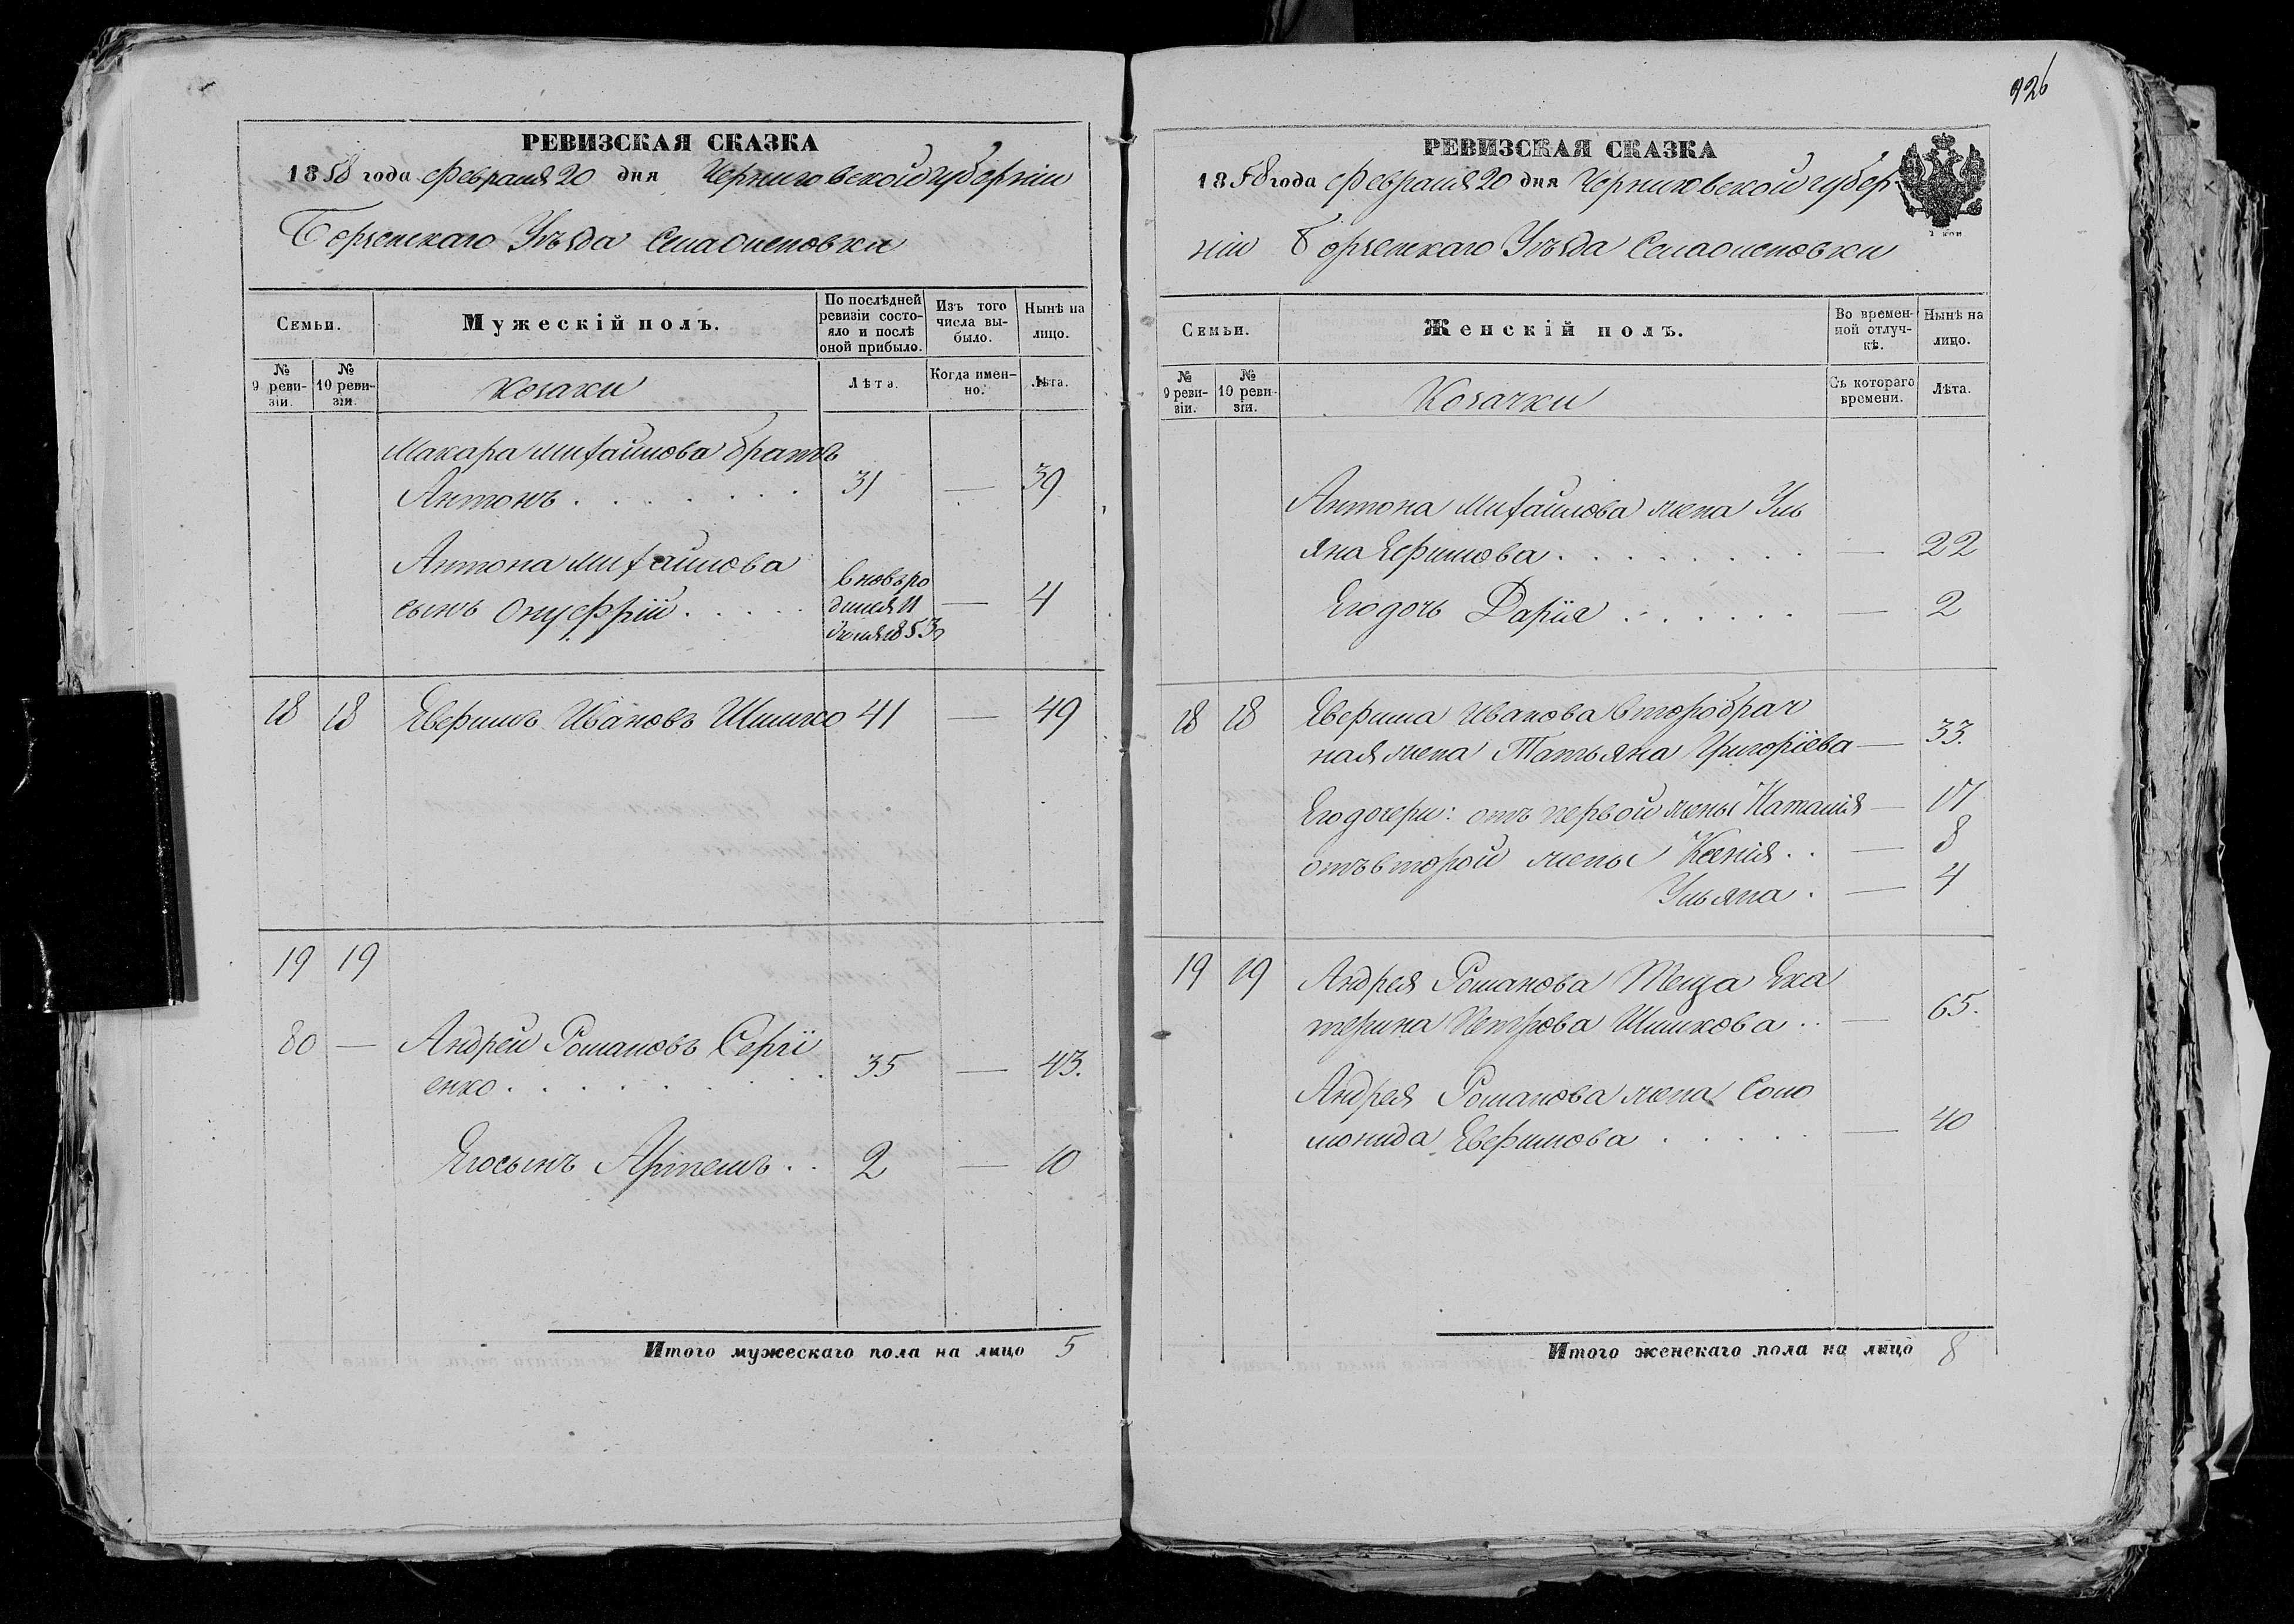 РЕВИЗСКАЯ СКАЗКА
1858 года Февраля 20 дня Черниговской губерніи
Борзенскаго Уѣзда Села Оленовки
Семьи.
Мужескій полъ.
По послѣдней ревизіи состояло и послѣ оной прибыло.
Изъ того числа выбыло.
Нынѣ на лицо.
№ 9 ревизіи.
№ 10 ревизіи.
Козаки
Лѣта.
Когда именно.
Лѣта.
Макара Михайлова братъ
Антонъ . . . . . . . 31 — 39
Антона Михайлова
сынъ Онуфрій . . . . . вновь родился 11 Іюля 1853 — 4
18 18 Евфимъ Ивановъ Шишко 41 — 49
19 19
80 — Андрей Романовъ Сергі
енко . . . . . . . . . 35 — 43.
Его сынъ Артемъ . . 2 — 10
Итого мужескаго пола на лицо 5
926
РЕВИЗСКАЯ СКАЗКА
1858 года Февраля 20 дня Черниговской губер
ніи Борзенскаго Уѣзда Села Оленовки
Семьи.
Женскій полъ.
Во временной отлучкѣ.
Нынѣ на лицо.
№ 9 ревизіи.
№ 10 ревизіи.
Козачки
Съ котораго времени.
Лѣта.
Антона Михайлова жена Уль
яна Ефимова . . . . . . . . — 22
Его дочь Дарія . . . . . . — 2
18 18 Евфима Иванова второбрач
ная жена Татьяна Григоріева — 33.
Его дочери: отъ первой жены Наталія — 17
отъ второй жены Ксенія . . — 8
Ульяна . — 4
19 19 Андрея Романова Теща Ека
терина Петрова Шишкова . . — 65.
Андрея Романова жена Соло
монида Евфимова . . . . . — 40
Итого женскаго пола на лицо 8